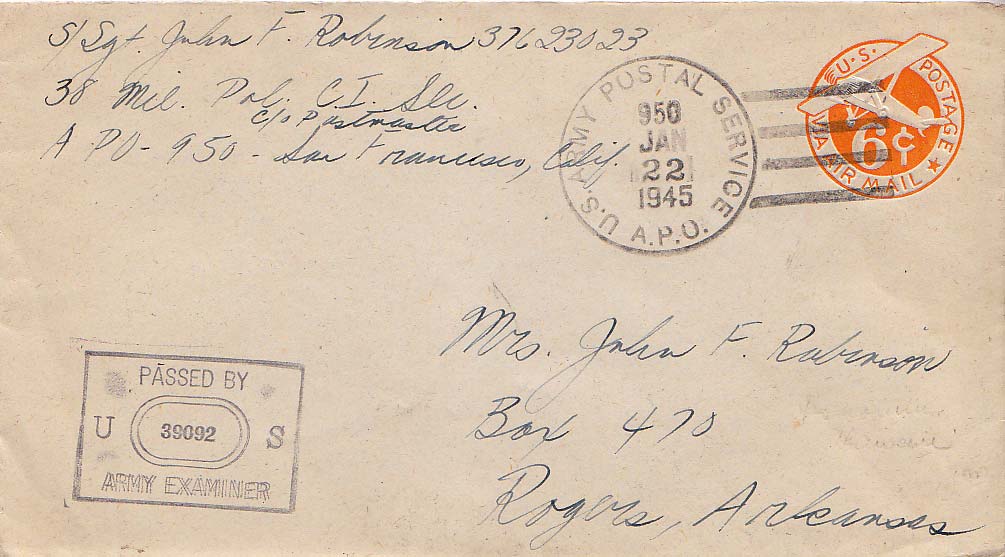 S/Sgt John F. Robinson 37623023
38 Mil. Pol. C.I. Sec.
c/o Postmaster
APO - 950 - San Francisco, Calif.
U.S. ARMY POSTAL SERVICE
950
JAN
22
1945
A.P.O.
U.S. POSTAGE
6¢
VIA AIR MAIL
Mrs. John F. Robinson
Box 470
Rogers, Arkansas
PASSED BY
U 39092 S
ARMY EXAMINER